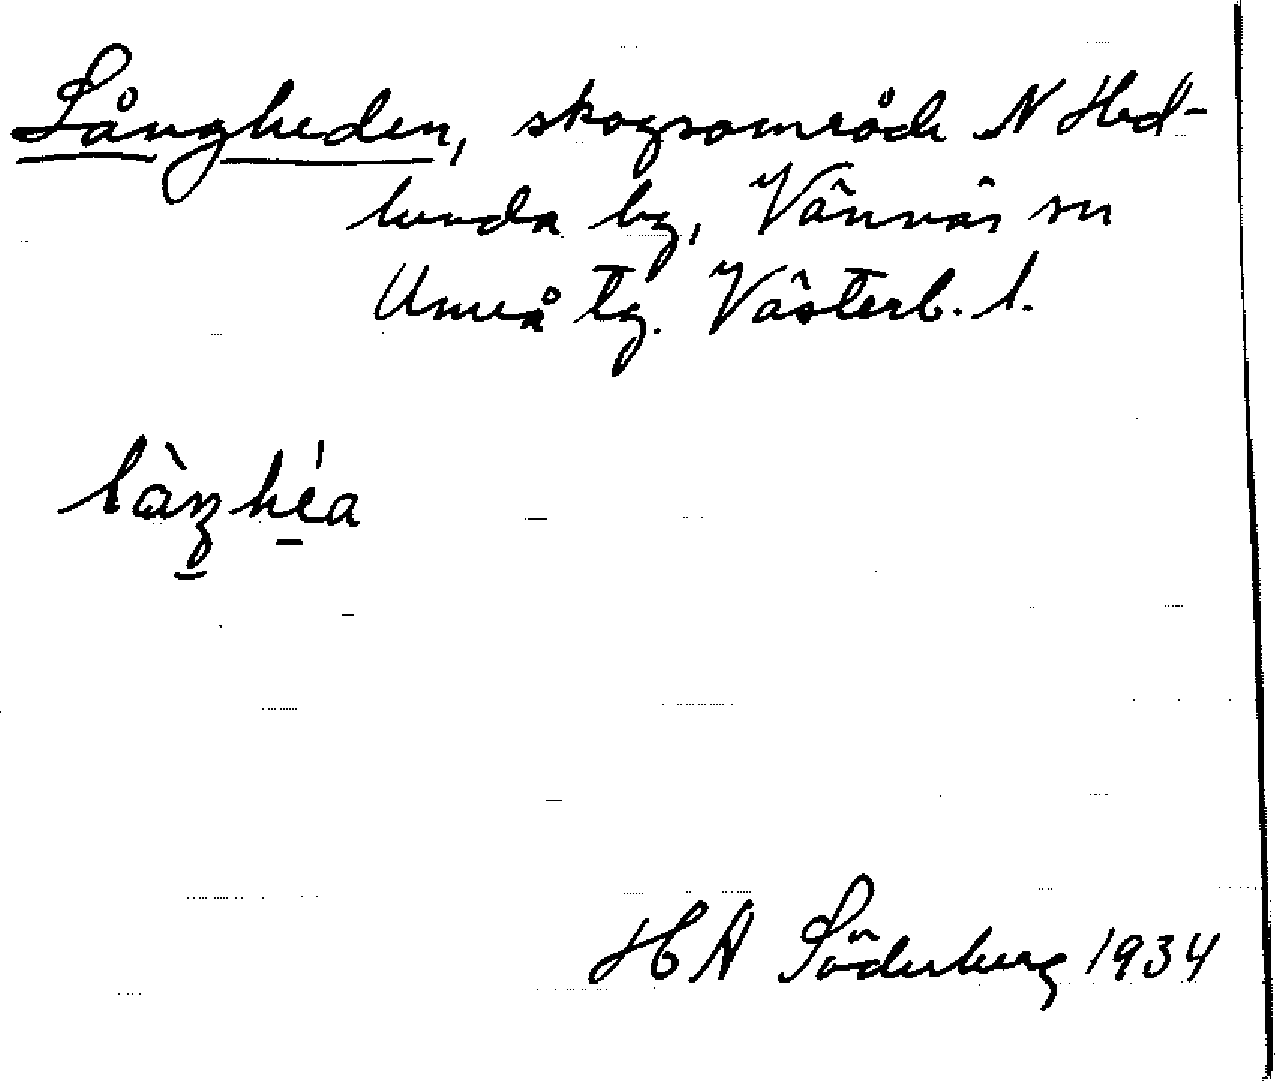 Långheden, skogsområde N Hed-
lunda by, Vännäs sn
Umeå tg. Västerb. l.
làŋhéa
H A Söderberg 1934